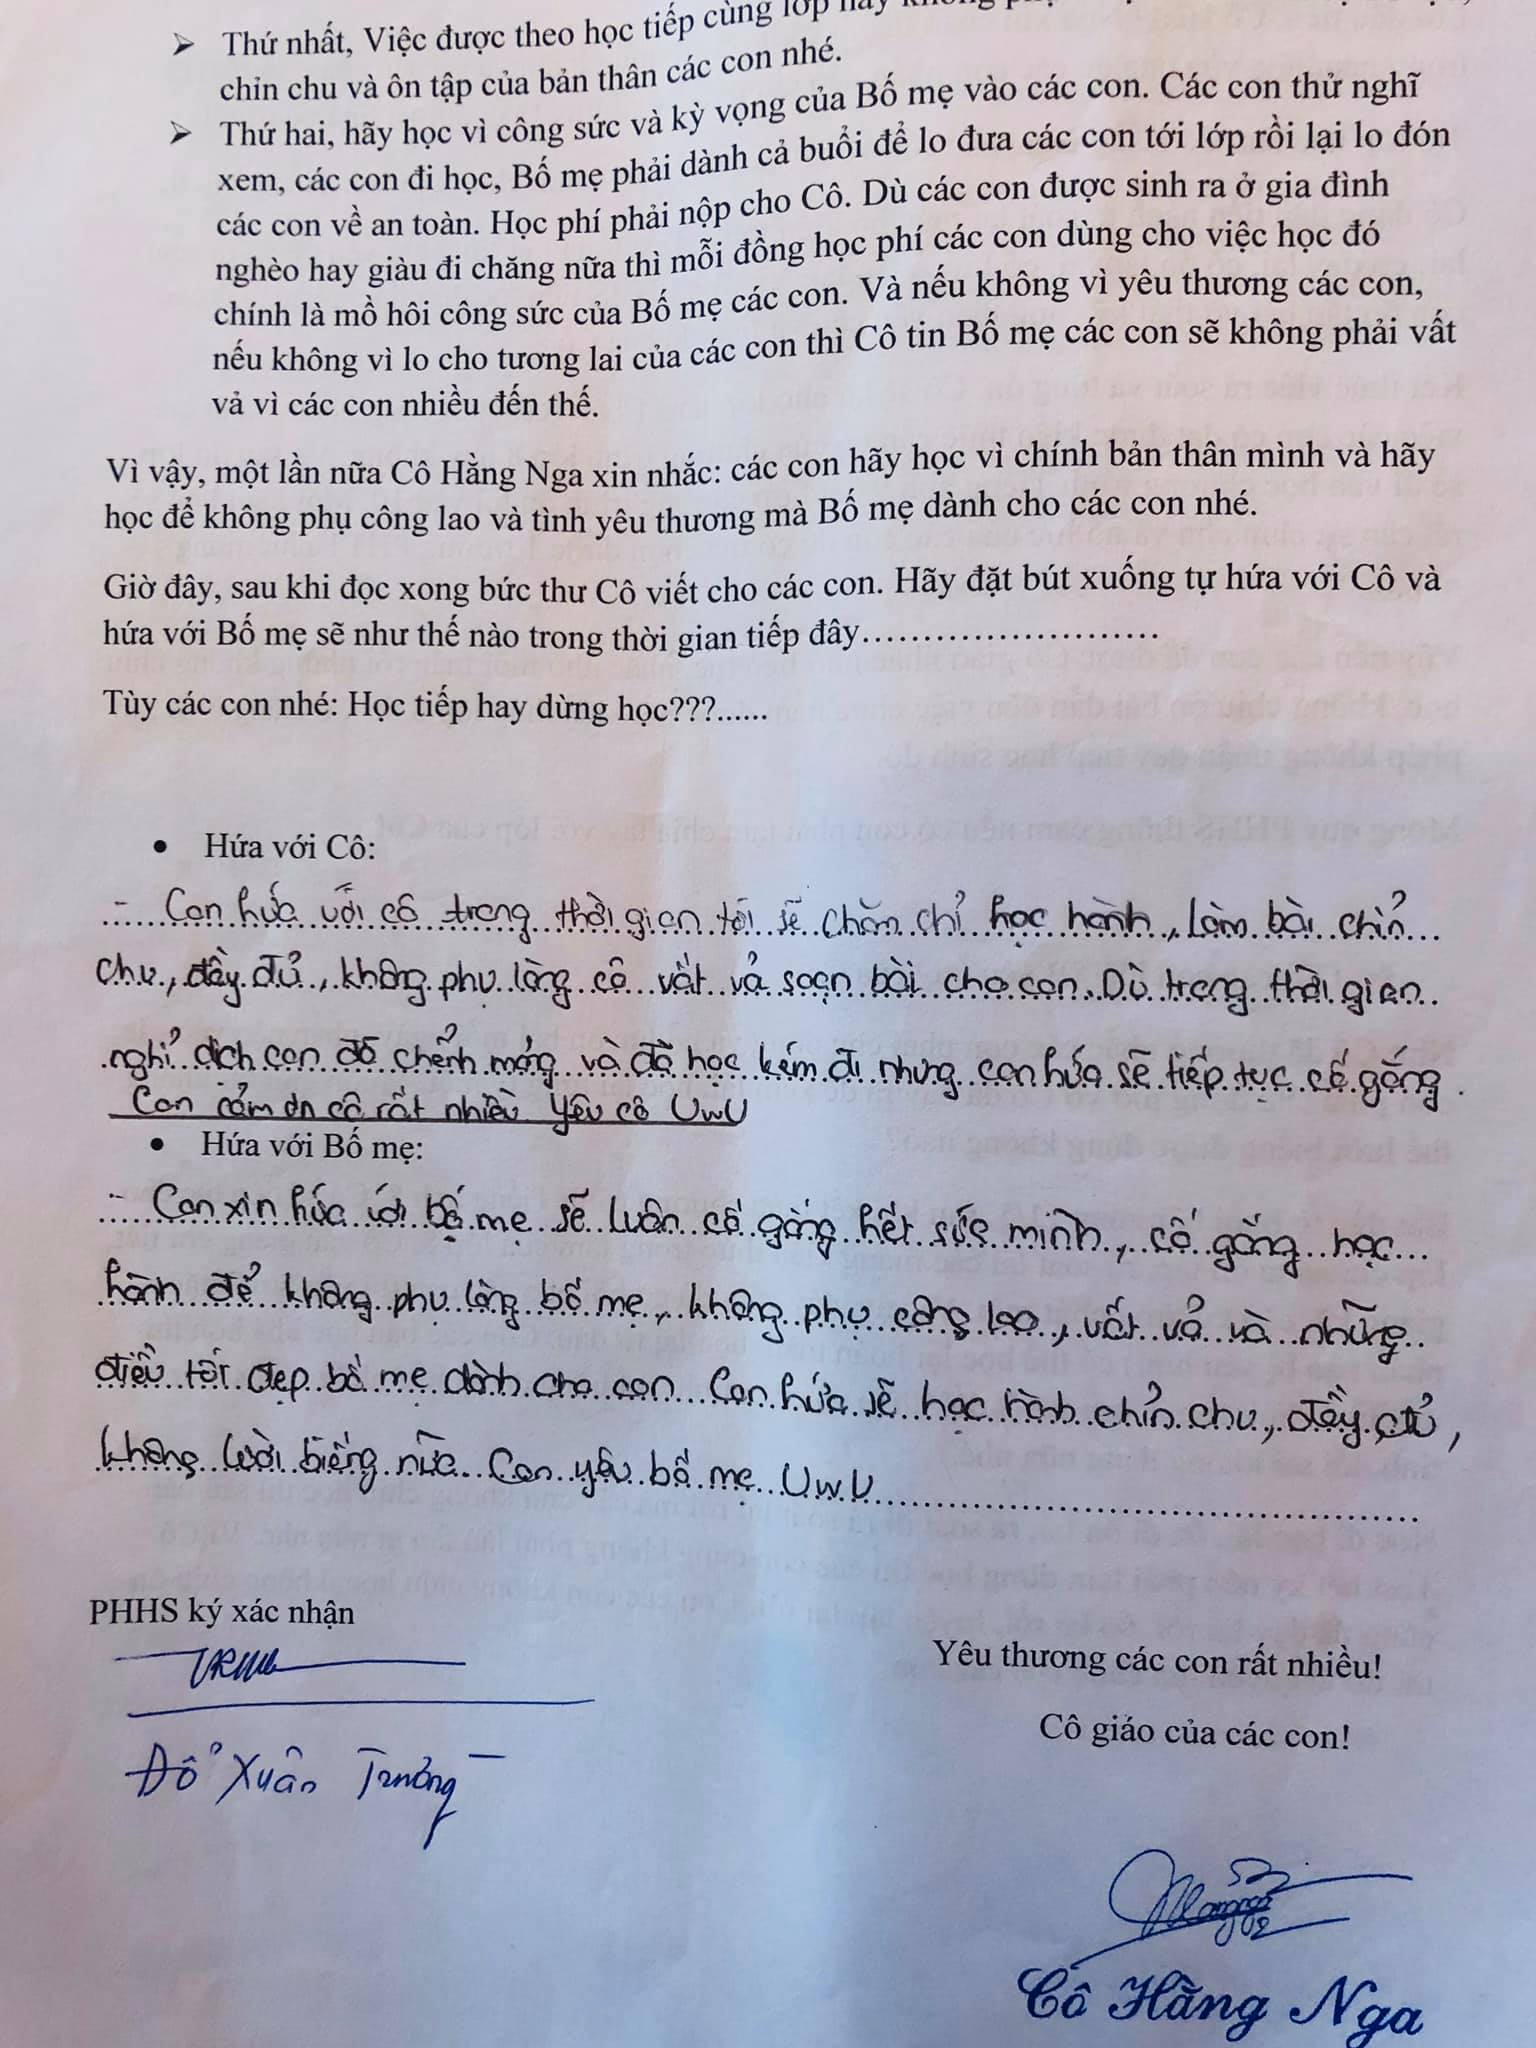 ➢ Thứ nhất, Việc được theo học tiếp cùng lớp hay không
chỉn chu và ôn tập của bản thân các con nhé.
➢ Thứ hai, hãy học vì công sức và kỳ vọng của Bố mẹ vào các con. Các con thử nghĩ
xem, các con đi học, Bố mẹ phải dành cả buổi để lo đưa các con tới lớp rồi lại lo đón
các con về an toàn. Học phí phải nộp cho Cô. Dù các con được sinh ra ở gia đình
nghèo hay giàu đi chăng nữa thì mỗi đồng học phí các con dùng cho việc học đó
chính là mồ hôi công sức của Bố mẹ các con. Và nếu không vì yêu thương các con,
nếu không vì lo cho tương lai của các con thì Cô tin Bố mẹ các con sẽ không phải vất
vả vì các con nhiều đến thế.
Vì vậy, một lần nữa Cô Hằng Nga xin nhắc: các con hãy học vì chính bản thân mình và hãy
học để không phụ công lao và tình yêu thương mà Bố mẹ dành cho các con nhé.
Giờ đây, sau khi đọc xong bức thư Cô viết cho các con. Hãy đặt bút xuống tự hứa với Cô và
hứa với Bố mẹ sẽ như thế nào trong thời gian tiếp đây.........................
Tùy các con nhé: Học tiếp hay dừng học???......
• Hứa với Cô:
- Con hứa với cô trong thời gian tới sẽ chăm chỉ học hành, làm bài chỉn
chu, đầy đủ, không phụ lòng cô vất vả soạn bài cho con. Dù trong thời gian
nghỉ dịch con đã chểnh mảng và đã học kém đi nhưng con hứa sẽ tiếp tục cố gắng.
Con cảm ơn cô rất nhiều Yêu cô UwU
• Hứa với Bố mẹ:
- Con xin hứa với bố mẹ sẽ luôn cố gắng hết sức mình, cố gắng học
hành để không phụ lòng bố mẹ, không phụ công lao, vất vả và những
điều tốt đẹp bố mẹ dành cho con. Con hứa sẽ học hành chỉn chu, đầy đủ,
không lười biếng nữa. Con yêu bố mẹ UwU
PHHS ký xác nhận
Yêu thương các con rất nhiều!
Cô giáo của các con!
Đỗ Xuân Trưởng
Cô Hằng Nga